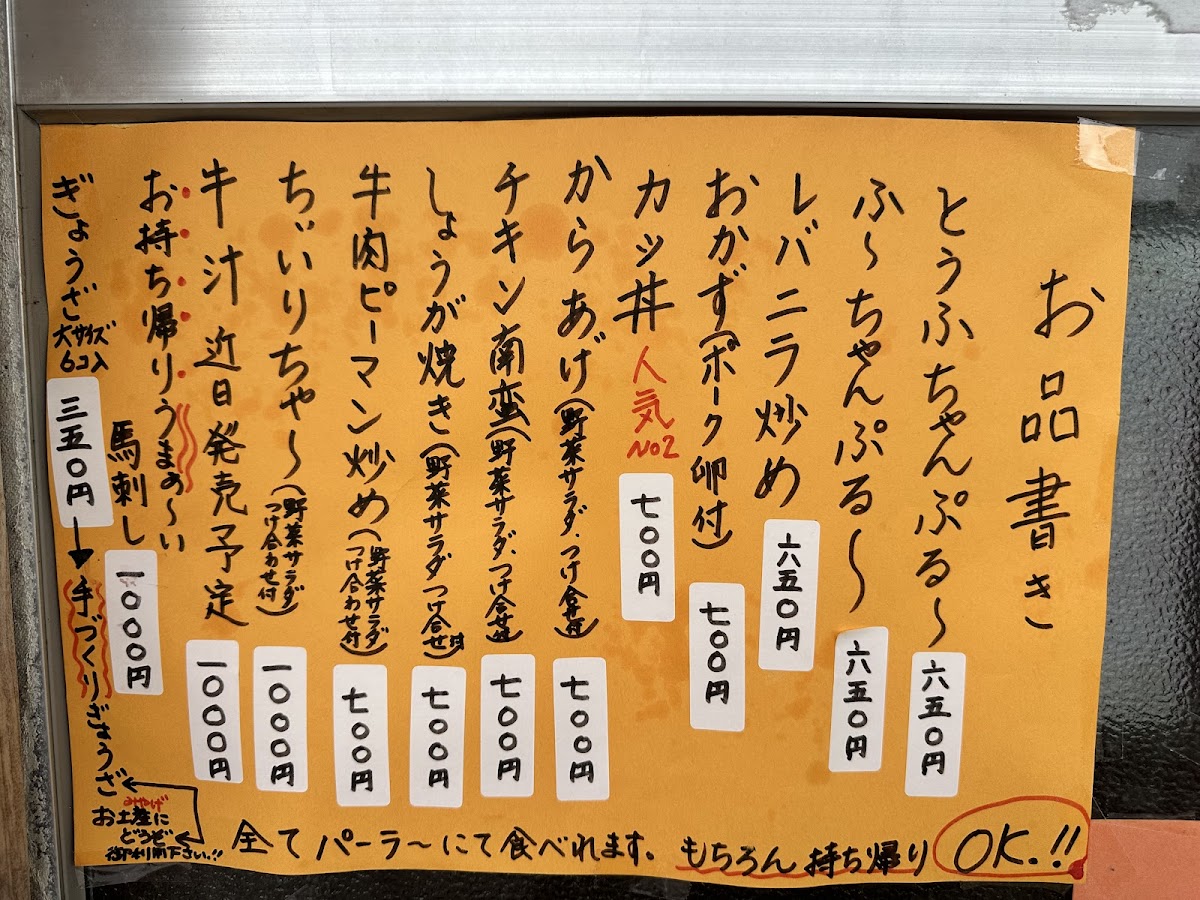 お品書き
とうふちゃんぷる〜 六五〇円
ふ〜ちゃんぷる〜 六五〇円
レバニラ炒め 六五〇円
おかず(ポーク卵付) 七〇〇円
カツ丼 人気No2 七〇〇円
からあげ(野菜サラダ、つけ合せ付) 七〇〇円
チキン南蛮(野菜サラダ、つけ合せ付) 七〇〇円
しょうが焼き(野菜サラダつけ合せ付) 七〇〇円
牛肉ピーマン炒め(野菜サラダ
つけ合わせ付) 七〇〇円
ちぃいりちゃ〜(野菜サラダ
つけ合わせ付) 一〇〇〇円
牛汁 近日発売予定 一〇〇〇円
お持ち帰りうまぁ〜い
馬刺し 一〇〇〇円
ぎょうざ 大サイズ
6コ入
三五〇円
手づくりぎょうざ
お土産に
みやげ
どうぞ
御利用下さい!!
全てパーラ〜にて食べれます。もちろん持ち帰りOK.!!